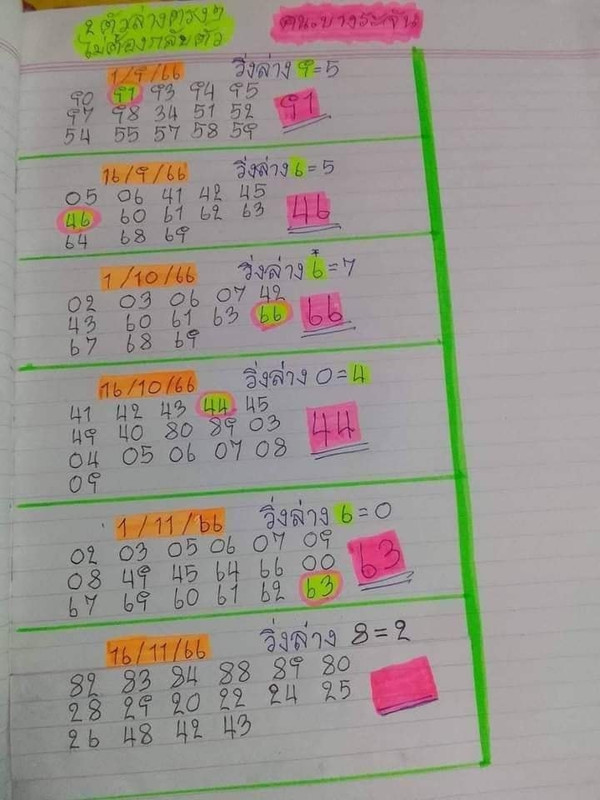 2 ตัวล่างตรงๆ คนบางระจัน
ไม่ต้องกลับตัว
1/9/66 วิ่งล่าง 9=5
90 91 93 94 95
97 98 34 51 52 91
54 55 57 58 59
16/9/66 วิ่งล่าง 6=5
05 06 41 42 45
46 60 61 62 63 46
64 68 69
1/10/66 วิ่งล่าง 6*=7
02 03 06 07 42
43 60 61 63 66 66
67 68 69
16/10/66 วิ่งล่าง 0=4
41 42 43 44 45
49 40 80 89 03 44
04 05 06 07 08
09
1/11/66 วิ่งล่าง 6=0
02 03 05 06 07 09
08 49 45 64 66 00 63
67 69 60 61 62 63
16/11/66 วิ่งล่าง 8=2
82 83 84 88 89 80
28 29 20 22 24 25
26 48 42 43